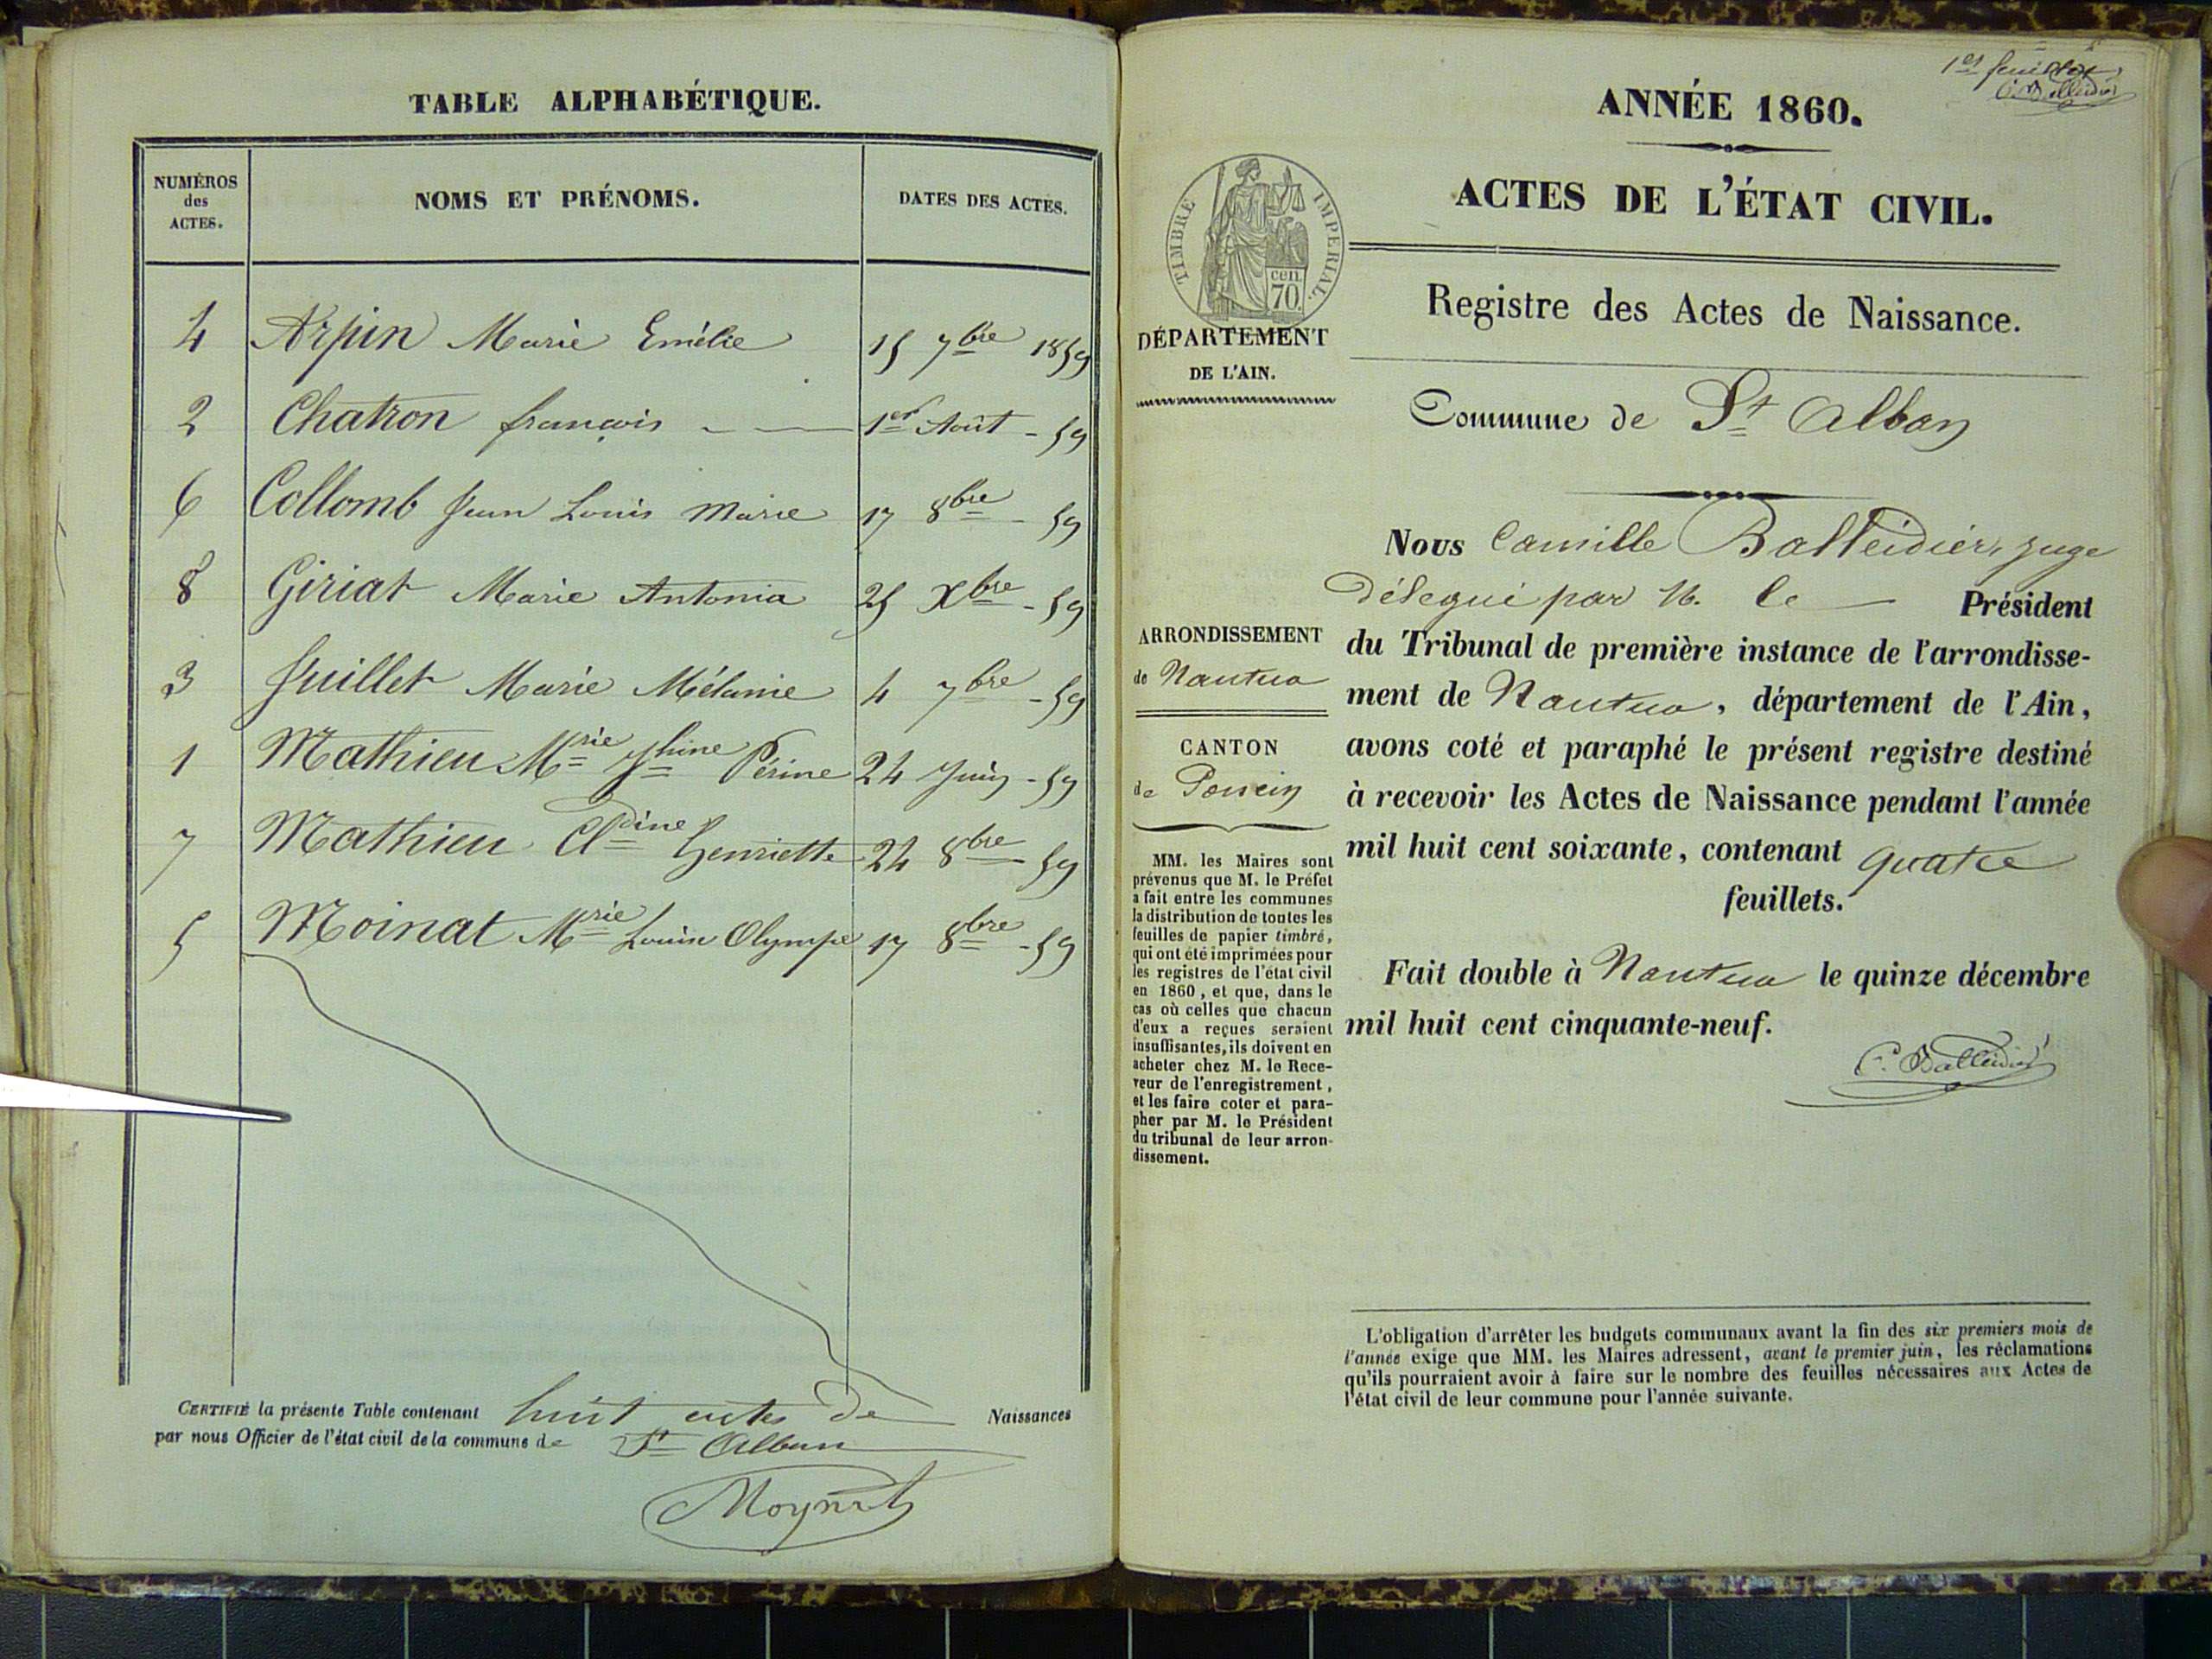 TABLE ALPHABÉTIQUE.
NUMÉROS des ACTES. NOMS ET PRÉNOMS. DATES DES ACTES.
4 Arpin Marie Emélie 15 7bre 1859
2 Chatron françois 1er Août - 59
6 Collomb Jean Louis Marie 17 8bre - 59
8 Giriat Marie Antonia 25 Xbre - 59
3 Juillet Marie Mélanie 4 7bre - 59
1 Mathieu Mrie Jhine Périne 24 Juin - 59
7 Mathieu Cldine henriette 24 8bre - 59
5 Moinat Mrie Louise Olympe 17 8bre - 59
CERTIFIÉ la présente Table contenant huit actes de Naissances
par nous Officier de l'état civil de la commune de St Alban
Moynat
1er feuillet
C. Balleidier
ANNÉE 1860.
ACTES DE L'ÉTAT CIVIL.
TIMBRE IMPERIAL.
cen.
70
DÉPARTEMENT
DE L'AIN.
Registre des Actes de Naissance.
Commune de St Alban
ARRONDISSEMENT
de Nantua
CANTON
de Poncin
MM. les Maires sont
prévenus que M. le Préfet
a fait entre les communes
la distribution de toutes les
feuilles de papier timbré,
qui ont été imprimées pour
les registres de l'état civil
en 1860, et que, dans le
cas où celles que chacun
d'eux a reçues seraient
insuffisantes, ils doivent en
acheter chez M. le Rece-
veur de l'enregistrement,
et les faire coter et para-
pher par M. le Président
du tribunal de leur arron-
dissement.
Nous Camille Balleidier, juge
délegué par M. le Président
du Tribunal de première instance de l'arrondisse-
ment de Nantua, département de l'Ain,
avons coté et paraphé le présent registre destiné
à recevoir les Actes de Naissance pendant l'année
mil huit cent soixante, contenant quatre
feuillets.
Fait double à Nantua le quinze décembre
mil huit cent cinquante-neuf.
C. Balleidier
L'obligation d'arrêter les budgets communaux avant la fin des six premiers mois de
l'année exige que MM. les Maires adressent, avant le premier juin, les réclamations
qu'ils pourraient avoir à faire sur le nombre des feuilles nécessaires aux Actes de
l'état civil de leur commune pour l'année suivante.